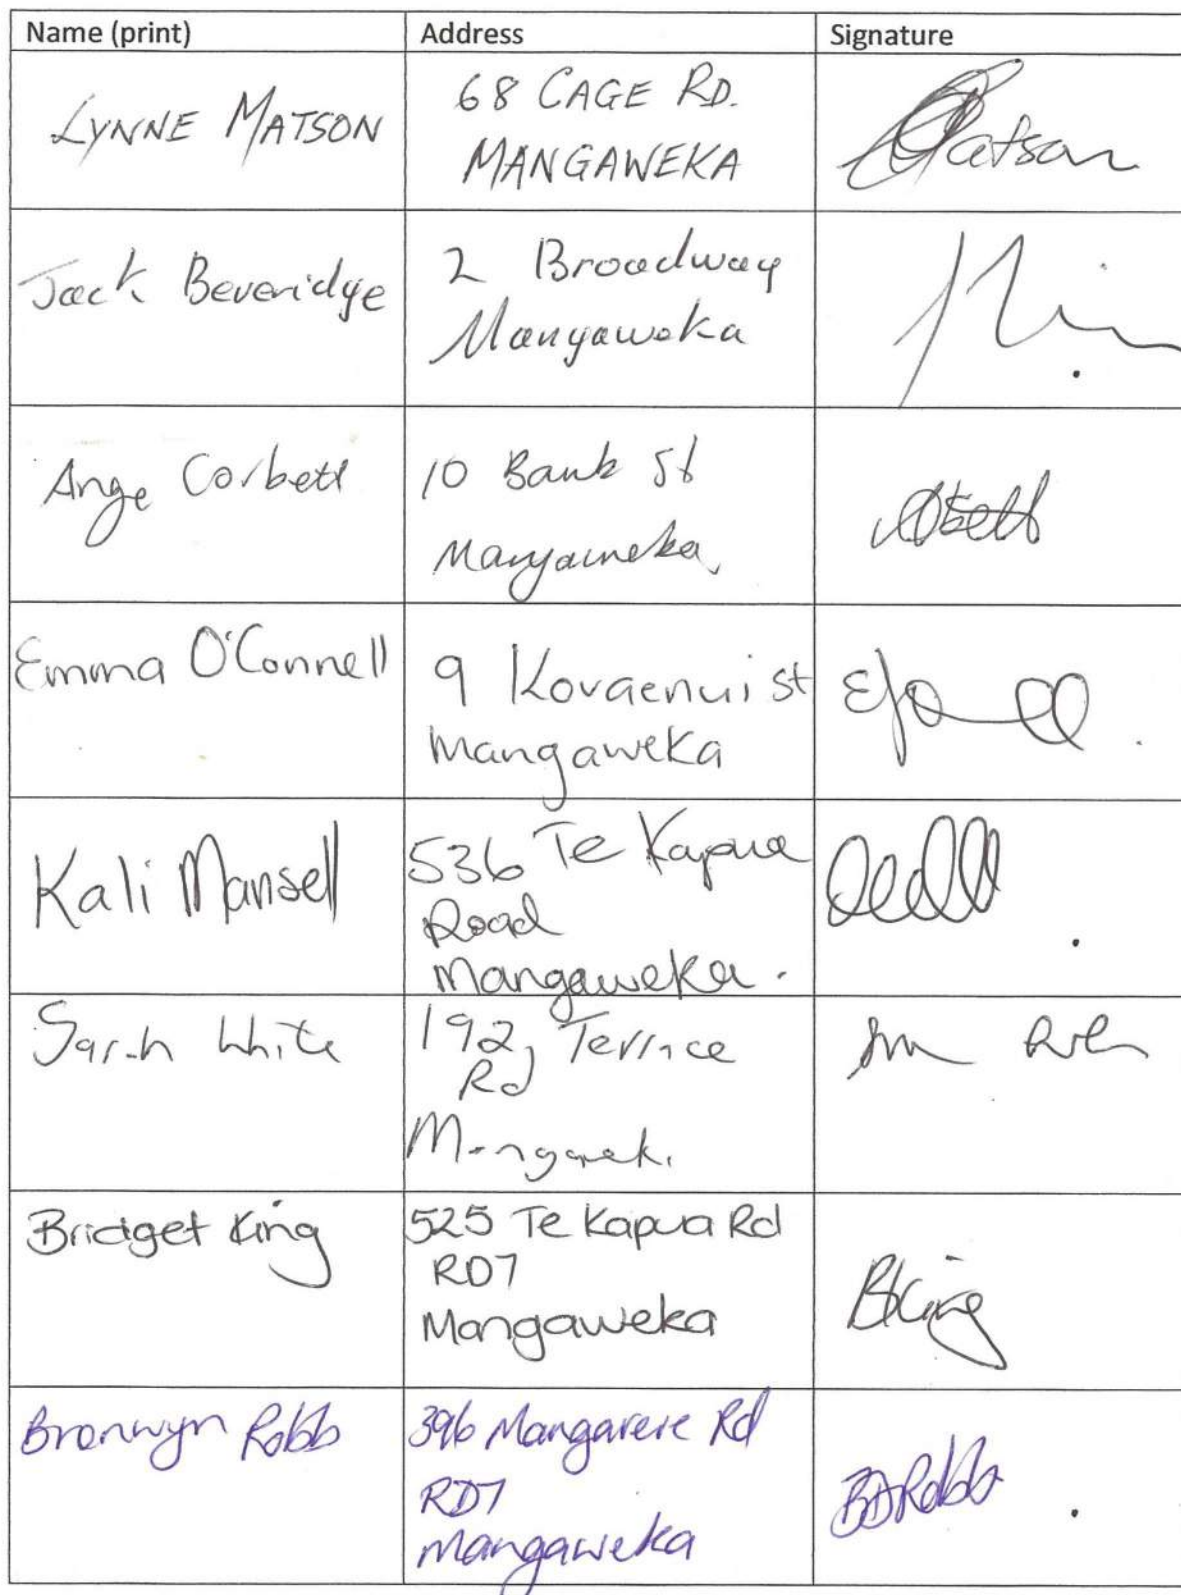 Name (print) Address Signature
LYNNE MATSON
68 CAGE RD.
MANGAWEKA
Jack Beveridge
2 Broadway
Mangaweka
Ange Corbett
10 Bank St
Mangaweka
Emma O'Connell
9 Koraenui st
Mangaweka
Kali Mansell
536 Te Kapua
Road
Mangaweka.
Sarah White
192, Terrace
Rd
Mangaweka
Bridget King
525 Te Kapua Rd
RD7
Mangaweka
BKing
Bronwyn Robb
396 Mangarere Rd
RD7
Mangaweka
BDRobb